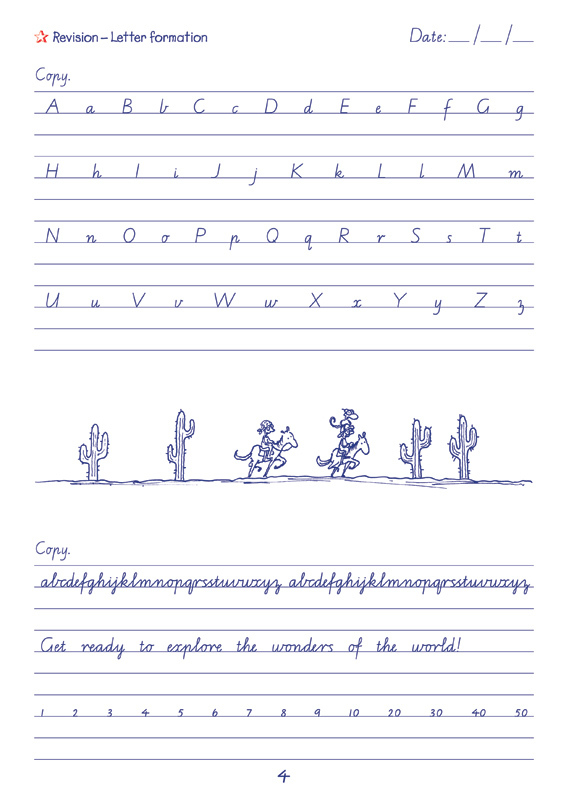 Revision – Letter formation
Date: __ / __ / __
Copy.
A a B b C c D d E e F f G g
H h I i J j K k L l M m
N n O o P p Q q R r S s T t
U u V v W w X x Y y Z z
Copy.
abcdefghijklmnopqrsstuvwxyz abcdefghijklmnopqrsstuvwxyz
Get ready to explore the wonders of the world!
1 2 3 4 5 6 7 8 9 10 20 30 40 50
4